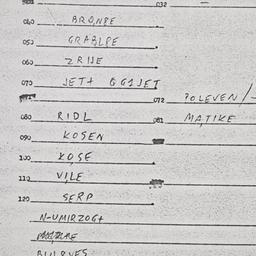 032
040 BRONPE
050 GRABLPE
060 ZRNE
070 JET+ GG1JET
072 POLEVEN/-
080 RIDL 081 MATIKE
090 KOSEN
100 KOSE
110 VILE
120 SERP
N-UMIRZOG+